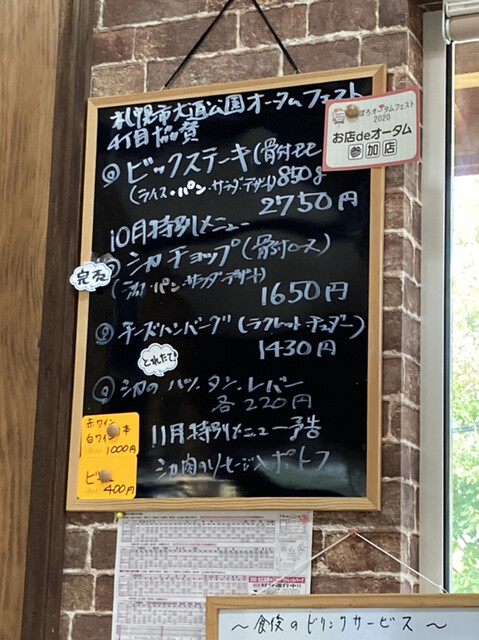 札幌市大通公園オータムフェスト
4丁目協賛
ぽろオータムフェスト
2020
お店deオータム
参加店
ビックステーキ(骨付モモ
(ライス・パン・サラダ・デザート) 850g
2750円
10月特別メニュー
完売
シカチョップ(骨付ロース)
(ライス・パン・サラダ・デザート)
1650円
チーズハンバーグ(ラクレットチェダー)
1430円
とれたて!
シカのハツ.タン.レバー
各220円
赤ワイン
白ワイン 本
1000円
ビール
400円
11月特別メニュー予告
シカ肉のソーセージ入ポトフ
～食後のドリンクサービス～